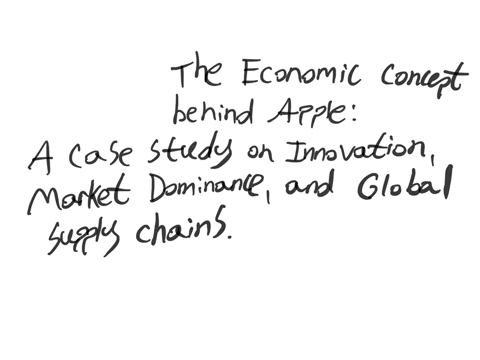 The Economic Concept
behind Apple:
A case study on Innovation,
Market Dominance, and Global
supply chains.